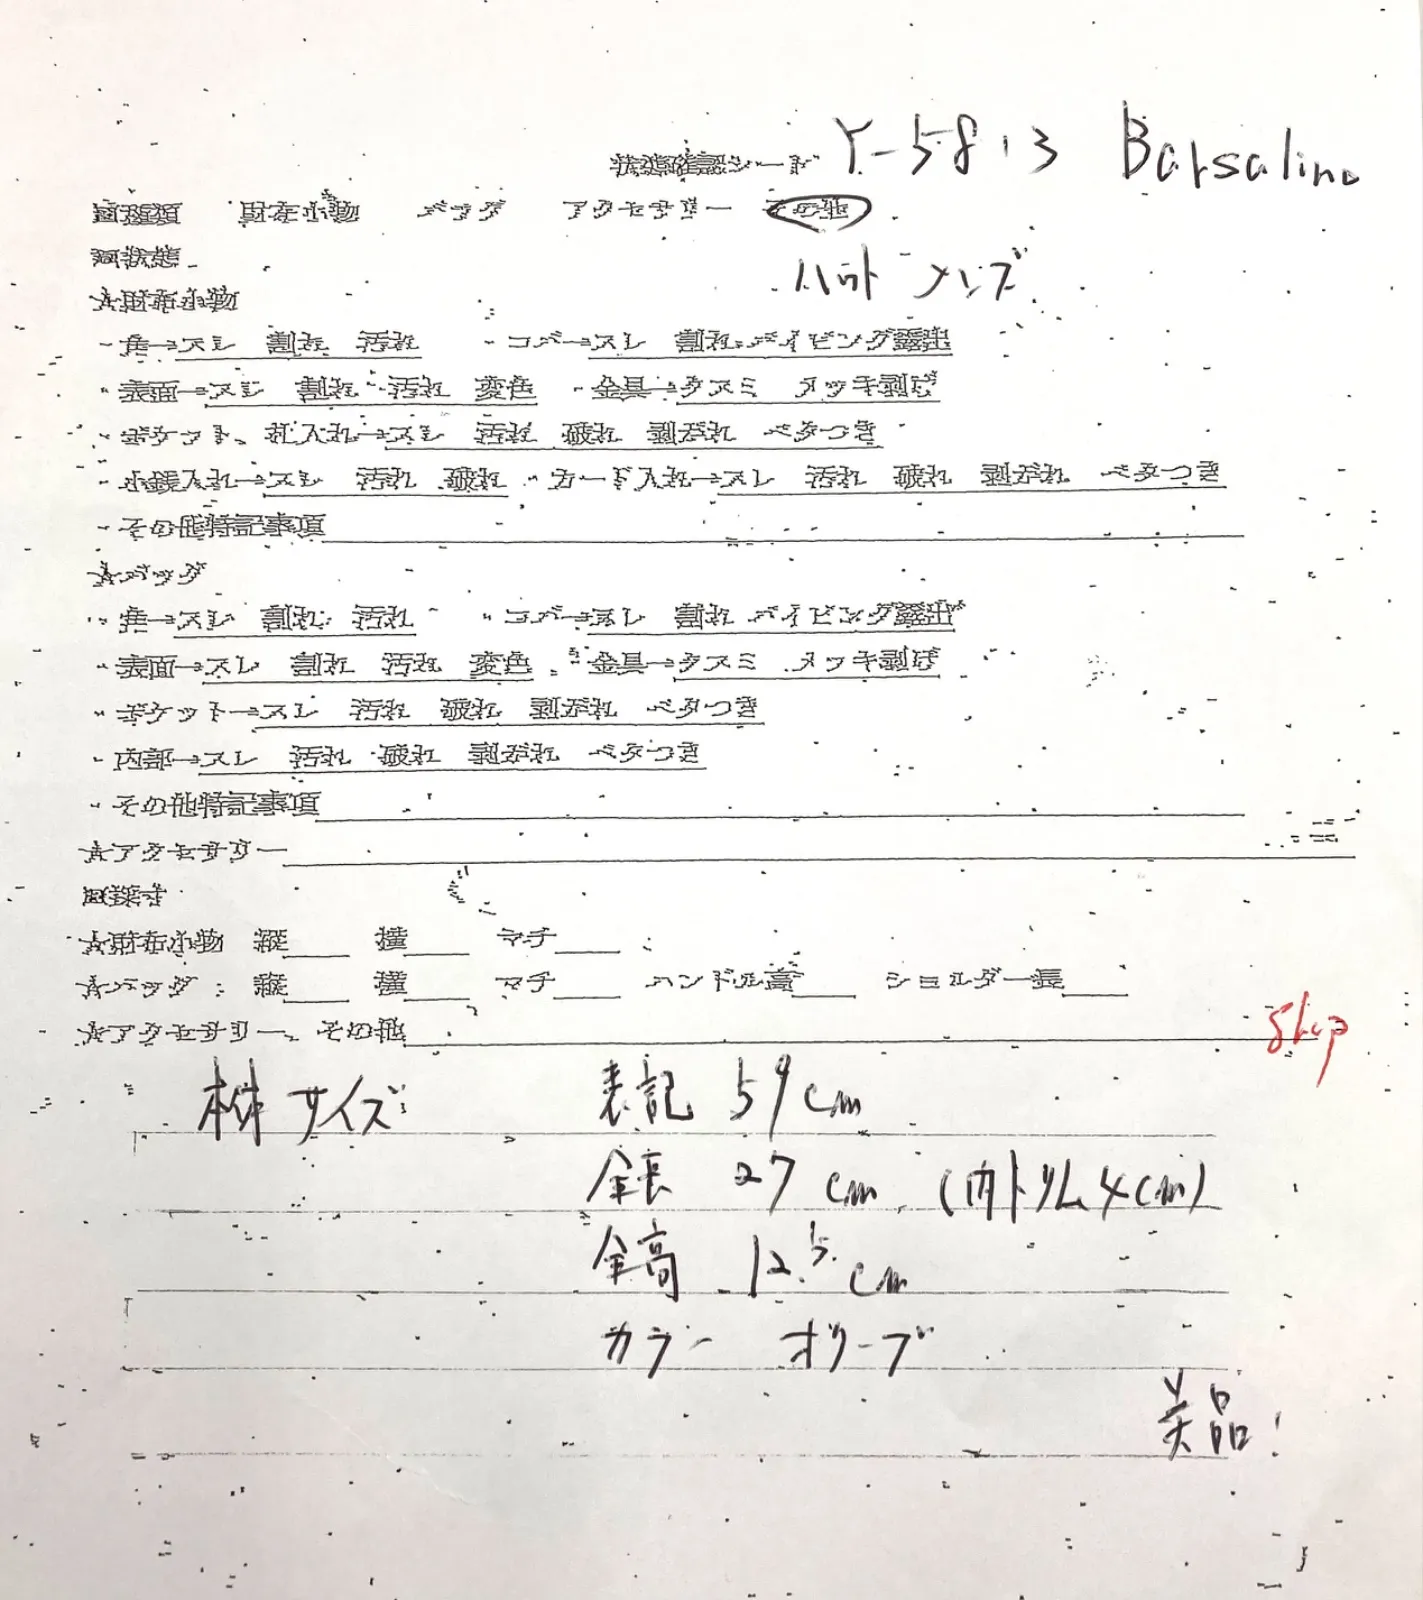 状態確認シート Y-5813 Borsalino
□種類 財布小物 バッグ アクセサリー その他
□状態 ハット メンズ
☆財布小物
・角→スレ 割れ 汚れ ・コバ→スレ 割れ パイピング露出
・表面→スレ 割れ 汚れ 変色 ・金具→クスミ メッキ剥げ
・ポケット、札入れ→スレ 汚れ 破れ 剥がれ ベタつき
・小銭入れ→スレ 汚れ 破れ ・カード入れ→スレ 汚れ 破れ 剥がれ ベタつき
・その他特記事項
☆バッグ
・角→スレ 割れ 汚れ ・コバ→スレ 割れ パイピング露出
・表面→スレ 割れ 汚れ 変色 ・金具→クスミ メッキ剥げ
・ポケット→スレ 汚れ 破れ 剥がれ ベタつき
・内部→スレ 汚れ 破れ 剥がれ ベタつき
・その他特記事項
☆アクセサリー
□採寸
☆財布小物 縦 横 マチ
☆バッグ: 縦 横 マチ ハンドル高 ショルダー長
☆アクセサリー、その他
本体サイズ 表記 59cm
全長 27cm (内トリム4cm)
全高 12.5cm
カラー オリーブ
美品!